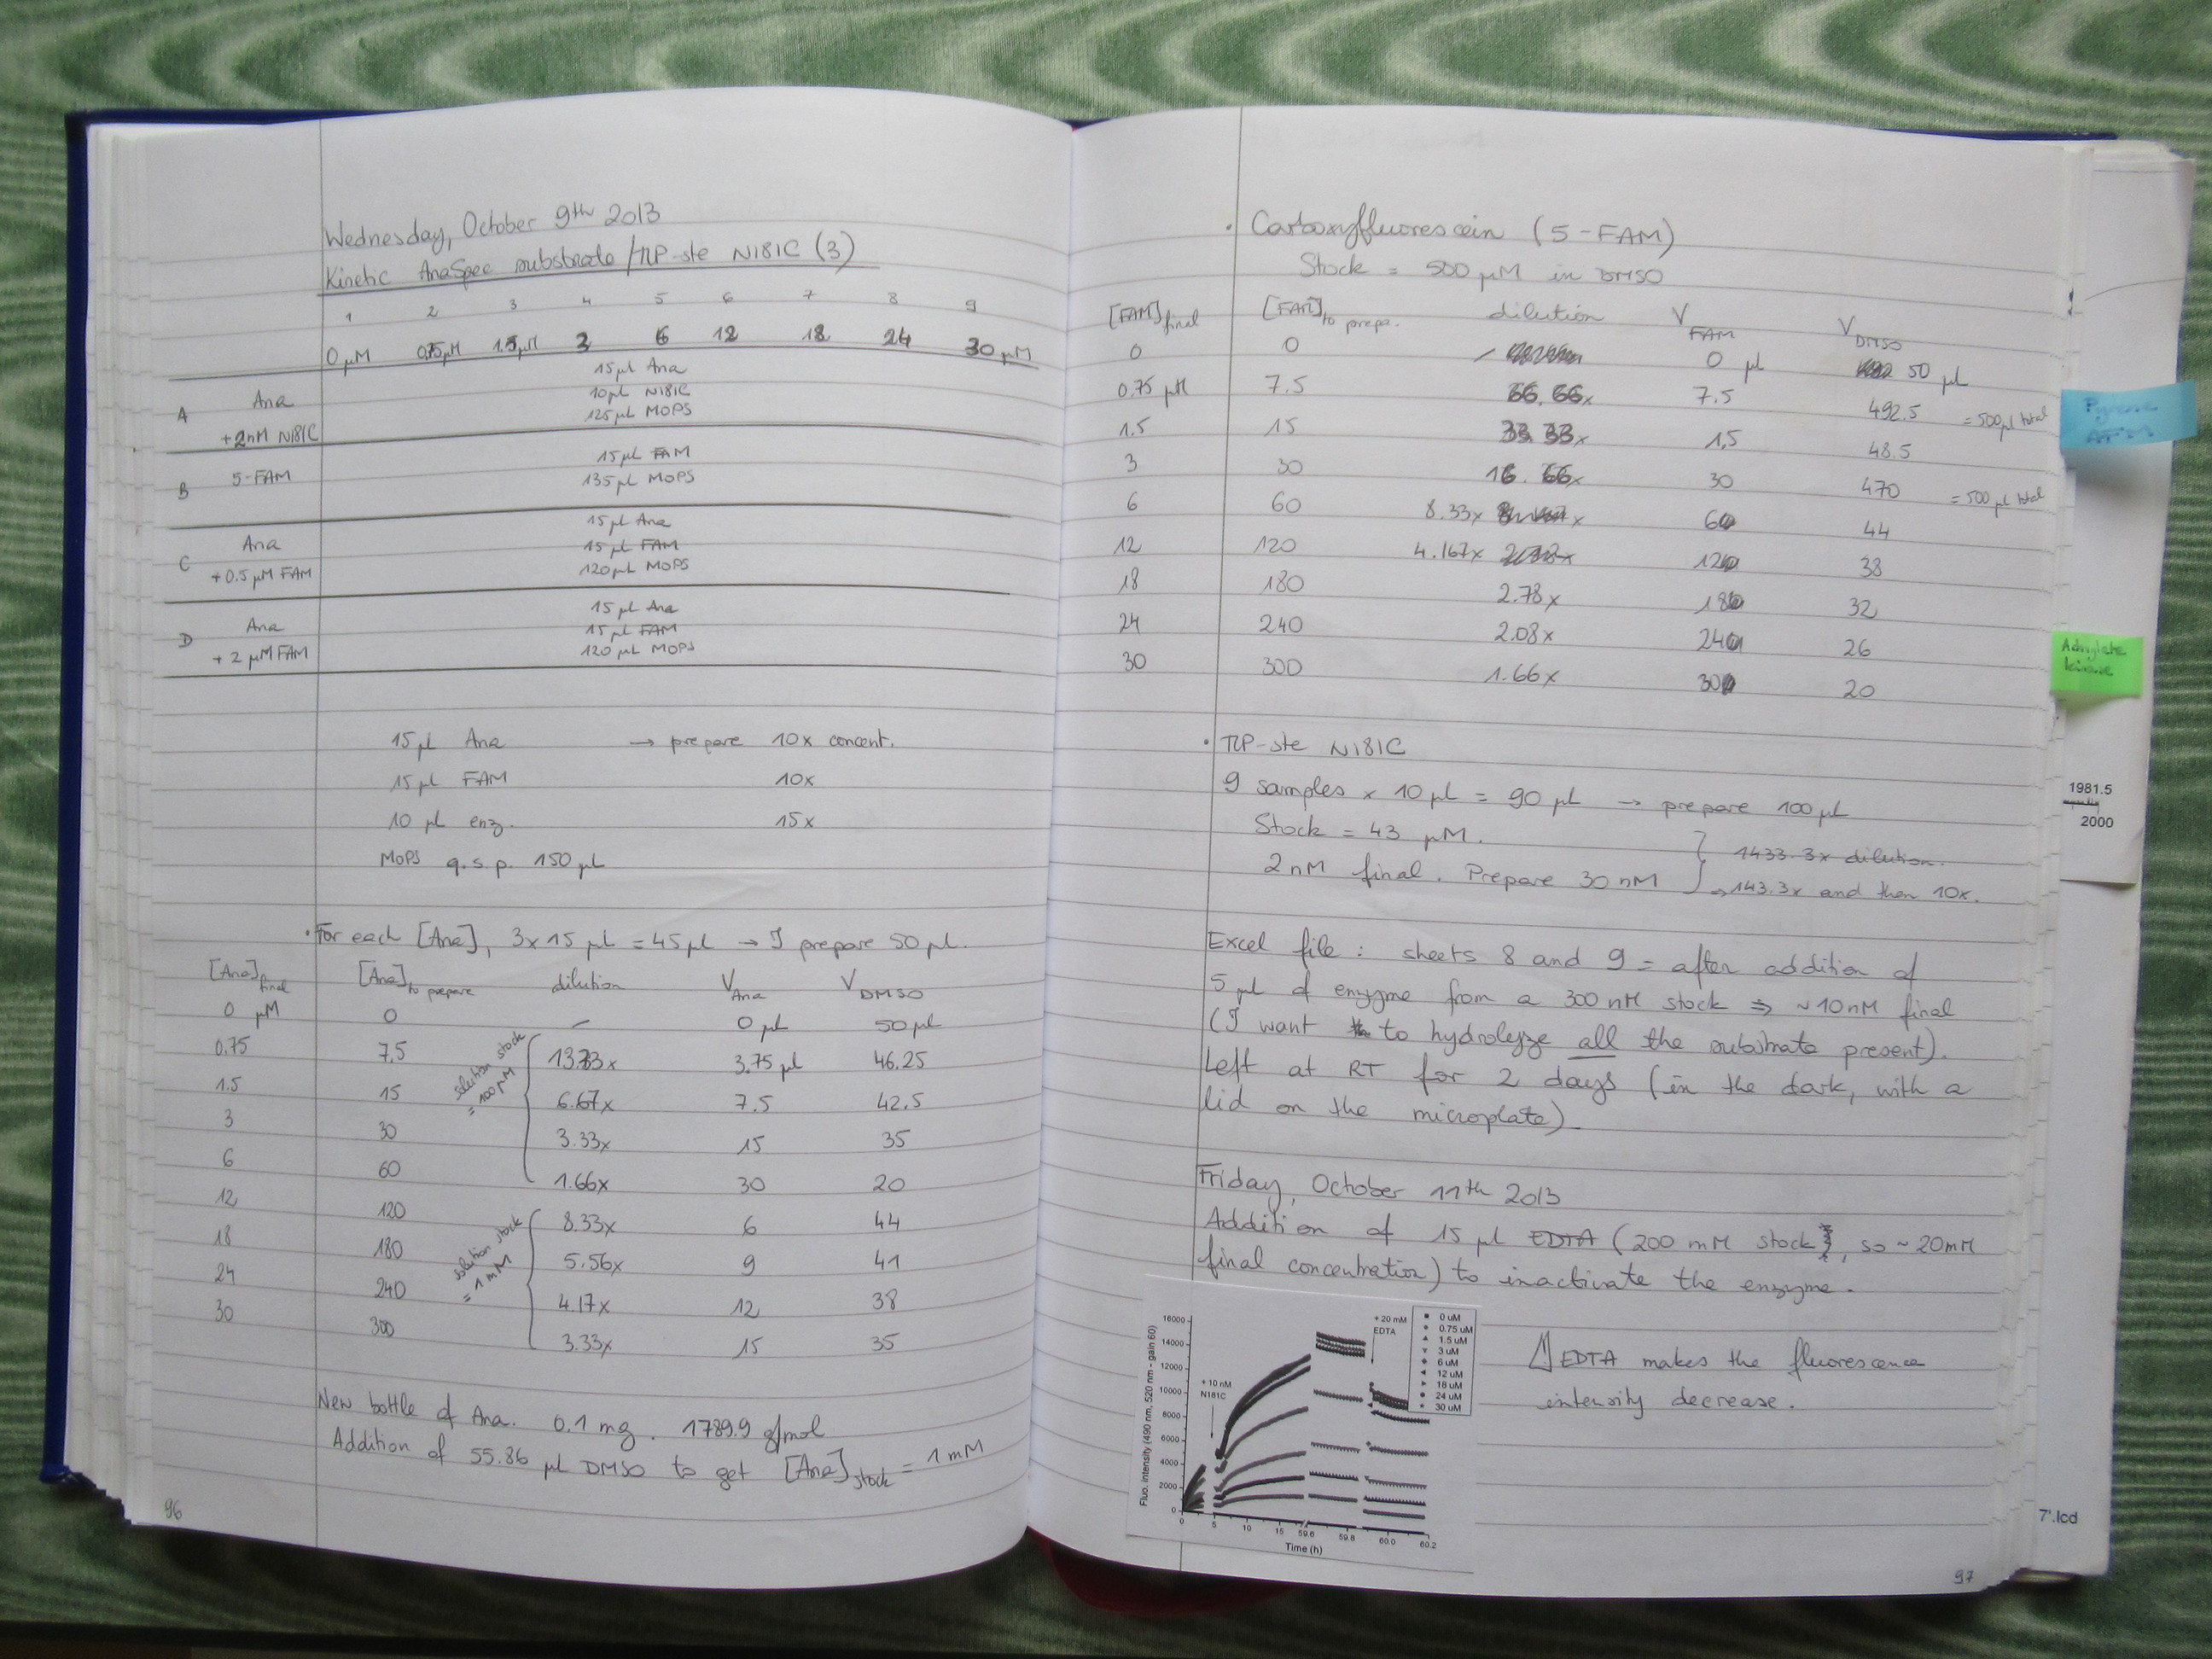 Wednesday, October 9th 2013
Kinetic AnaSpec substrate / TLP-ste N181C (3)
1 2 3 4 5 6 7 8 9
0 µM 0.75 µM 1.5 µM 3 6 12 18 24 30 µM
A Ana + 2nM N181C
15 µl Ana
10 µl N181C
125 µl MOPS
B 5-FAM
15 µl FAM
135 µl MOPS
C Ana + 0.5 µM FAM
15 µl Ana
15 µl FAM
120 µl MOPS
D Ana + 2 µM FAM
15 µl Ana
15 µl FAM
120 µl MOPS
15 µl Ana → prepare 10x concent.
15 µl FAM 10x
10 µl enz. 15x
MOPS q.s.p. 150 µl
• For each [Ana], 3x15 µl = 45 µl → I prepare 50 µl.
[Ana]final [Ana]to prepare dilution VAna VDMSO
0 µM 0 – 0 µl 50 µl
0.75 7.5 13.33x 3.75 µl 46.25
1.5 15 6.67x 7.5 42.5
3 30 3.33x 15 35
6 60 1.66x 30 20
solution stock = 100 µM
12 120 8.33x 6 44
18 180 5.56x 9 41
24 240 4.17x 12 38
30 300 3.33x 15 35
solution stock = 1 mM
New bottle of Ana. 0.1 mg. 1789.9 g/mol
Addition of 55.86 µl DMSO to get [Ana]stock = 1 mM
96
• Carboxyfluorescein (5-FAM)
Stock = 500 µM in DMSO
[FAM]final [FAM]to prepa. dilution VFAM VDMSO
0 0 – 0 µl 50 µl
0.75 µM 7.5 66.66x 7.5 492.5 = 500 µl total
1.5 15 33.33x 1,5 48.5
3 30 16.66x 30 470 = 500 µl total
6 60 8.33x 6 44
12 120 4.167x 12 38
18 180 2.78x 18 32
24 240 2.08x 24 26
30 300 1.66x 30 20
• TLP-ste N181C
9 samples x 10 µl = 90 µl → prepare 100 µl
Stock = 43 µM.
2 nM final. Prepare 30 nM
1433.3x dilution.
→ 143.3x and then 10x.
Excel file : sheets 8 and 9 = after addition of
5 µl of enzyme from a 300 nM stock ⇒ ~10 nM final
(I want to hydrolyze all the substrate present).
Left at RT for 2 days (in the dark, with a
lid on the microplate).
Friday, October 11th 2013
Addition of 15 µl EDTA (200 mM stock, so ~ 20mM
final concentration) to inactivate the enzyme.
Fluo. intensity (490 nm, 520 nm - gain 60)
16000
14000
12000
10000
8000
6000
4000
2000
0
+ 10 nM
N181C
+ 20 mM
EDTA
0 uM
0.75 uM
1.5 uM
3 uM
6 uM
12 uM
18 uM
24 uM
30 uM
0 5 10 15 59.6 59.8 60.0 60.2
Time (h)
EDTA makes the fluorescence
intensity decrease.
97
Adenylate
kinase
1981.5
2000
7'.lcd